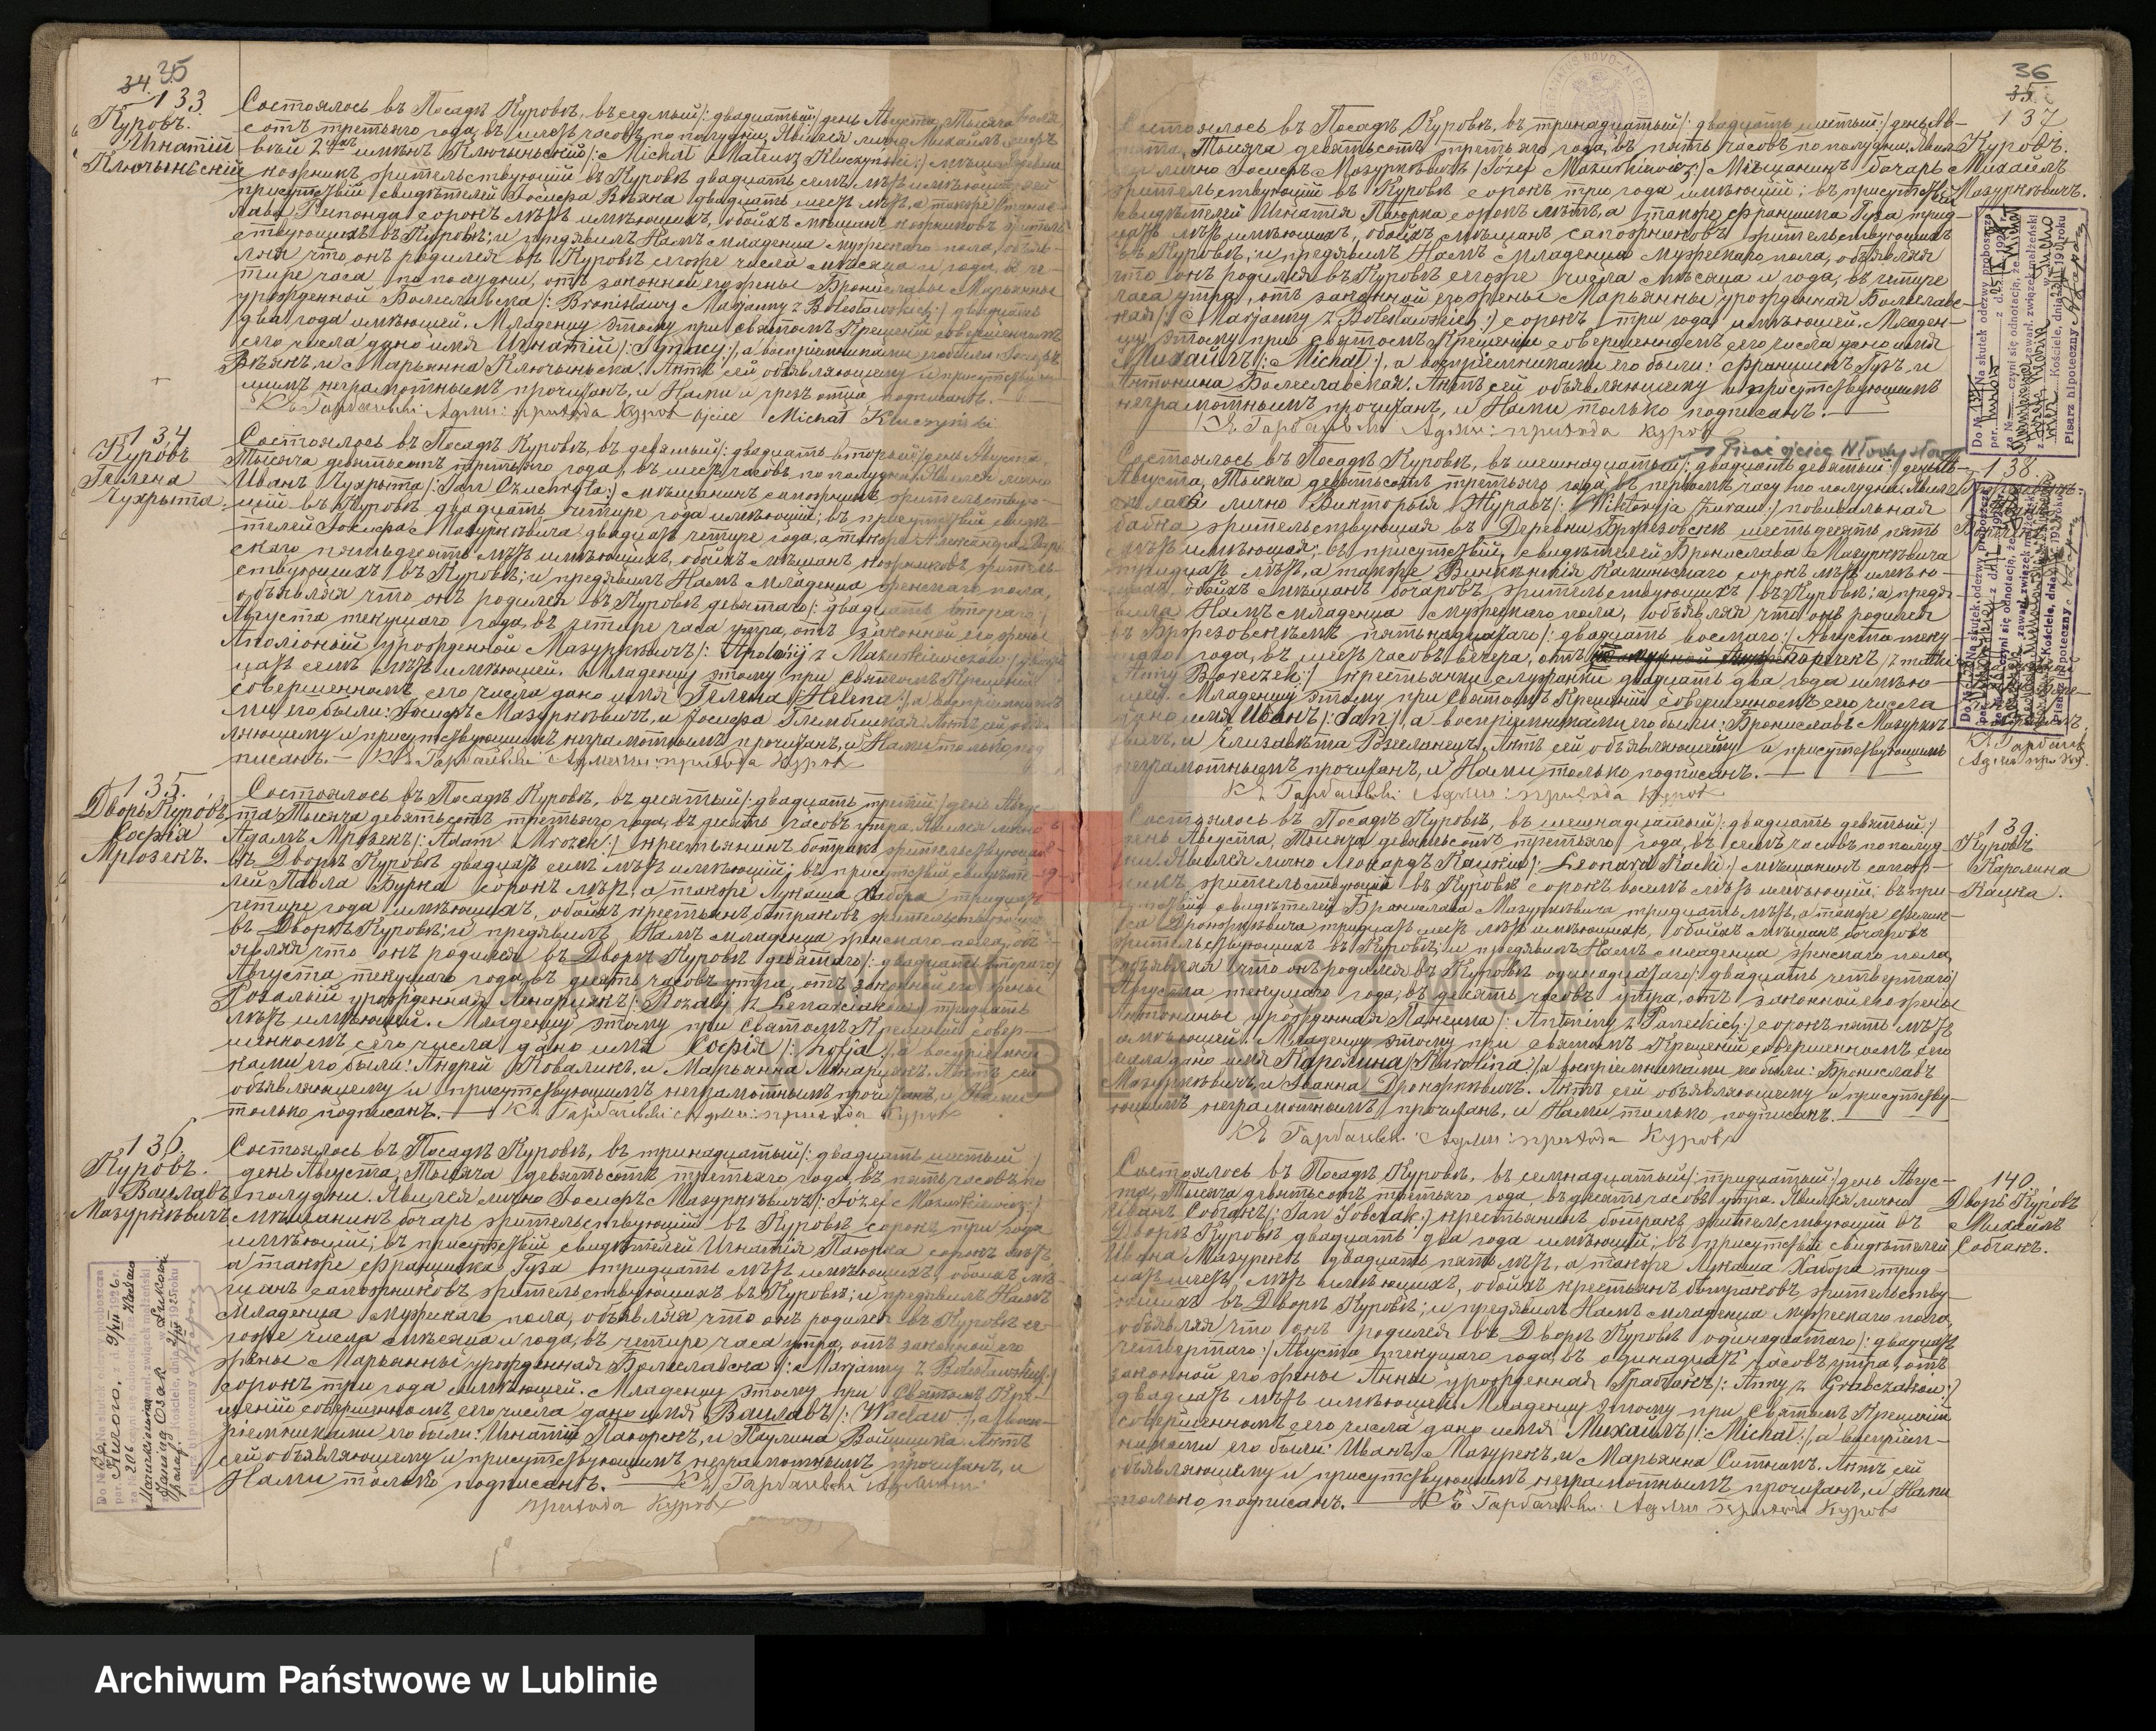 34. 35
133
Куровъ.
Игнатiй
Ключиньскiй
Состоялось въ Посадѣ Куровѣ, въ седьмый /: двадцатый:/ день Августа, Тысяча девять
сотъ третьяго года, въ шесть часовъ по полудни. Явился лично Михаилъ
2 имѣнъ Ключиньскiй /: Michał Mateusz Kluczyński :/ мѣщанинъ
кожникъ жительствующiй въ Куровѣ двадцать семь лѣтъ имѣющiй, въ
присутствiи свидѣтелей Iосифа двадцать шесть лѣтъ, а также Станис-
лава сорокъ лѣтъ имѣющихъ, обоихъ мѣщанъ кожниковъ житель-
ствующихъ въ Куровѣ; и предъявилъ Намъ младенца мужескаго пола, объяв-
ляя что онъ родился въ Куровѣ сегоже числа мѣсяца и года, въ че-
тыре часа по полудни, отъ законной его жены Брониславы Марьянны
урожденной Болеславска /: Bronisławy Marjanny z Bolesławskich :/ двадцать
два года имѣющей. Младенцу этому при Святомъ Крещенiи совершенномъ
сего числа дано имя Игнатiй /: Ignacy :/, а воспрiемниками его были: Iосифъ
и Марьянна Ключиньска. Актъ сей объявляющему и присутствую-
щимъ неграмотнымъ прочитанъ, и Нами и чрезъ отца подписанъ.
Кс Гарбачевскi Админ: прихода Куровъ Ojciec Michał Kluczyński
134
Куровъ
Гелена
Чухрыта.
Состоялось въ Посадѣ Куровѣ, въ девятый /: двадцать вторый:/ день Августа
Тысяча девятьсотъ третьяго года, въ шесть часовъ по полудни. Явился лично
Иванъ Чухрыта /: Jan Czuchryta :/ мѣщанинъ сапожникъ жительствую-
щiй въ Куровѣ двадцать четыре года имѣющiй; въ присутствiи свидѣ-
телей Iосифа Мазуркѣвича двадцать четыре года, а также Александра
скаго пятьдесятъ лѣтъ имѣющихъ, обоихъ мѣщанъ кожниковъ житель-
ствующихъ въ Куровѣ; и предъявилъ Намъ младенца женскаго пола,
объявляя что онъ родился въ Куровѣ девятаго /: двадцать втораго:/
Августа текущаго года, въ четыре часа утра, отъ законной его жены
Аполiонiи урожденной Мазуркѣвичъ /: Apolonij z Mazurkiewiczów :/ двад-
цать семь лѣтъ имѣющей. Младенцу этому при Святомъ Крещенiи
совершенномъ сего числа дано имя Гелена /: Helena :/, а воспрiемника-
ми его были: Iосифъ Мазуркѣвичъ, и Iосифа Глембицкая. Актъ сей объяв-
ляющему и присутствующимъ неграмотнымъ прочитанъ, и Нами только под-
писанъ. Кс Гарбачевскi Админ: прихода Куровъ
135.
Дворъ Куровъ
Софiя
Мрозекъ.
Состоялось въ Посадѣ Куровѣ, въ десятый /: двадцать третiй:/ день Авгус-
та Тысяча девятьсотъ третьяго года, въ десять часовъ утра. Явился лично
Адамъ Мрозекъ /: Adam Mrozek :/ крестьянинъ ботракъ жительствующiй
въ Дворѣ Куровѣ двадцать семь лѣтъ имѣющiй; въ присутствiи свидѣте-
лей Павла Бурка сорокъ лѣтъ, а также Лукаша Хабора тридцать
четыре года имѣющихъ, обоихъ крестьянъ ботраковъ жительствующихъ
въ Дворѣ Куровѣ; и предъявилъ Намъ младенца женскаго пола, объ-
являя что онъ родился въ Дворѣ Куровѣ девятаго /: двадцать втораго:/
Августа текущаго года, въ десять часовъ утра, отъ законной его жены
Розалiи урожденная Ленарцякъ /: Rozalij z Lenarciaków :/ тридцать
лѣтъ имѣющей. Младенцу этому при Святомъ Крещенiи совер-
шенномъ сего числа дано имя Софiя /: Zofja :/, а воспрiемни-
ками его были: Андрей Коваликъ, и Марьянна Ленарцякъ. Актъ сей
объявляющему и присутствующимъ неграмотнымъ прочитанъ, и Нами
только подписанъ. Кс Гарбачевскi Админ: прихода Куровъ
136.
Куровъ.
Вацлавъ
Мазуркѣвичъ
Состоялось въ Посадѣ Куровѣ, въ тринадцатый /: двадцать шестый :/
день Августа, Тысяча девятьсотъ третьяго года, въ пять часовъ по
полудни. Явился лично Iосифъ Мазуркѣвичъ /: Józef Mazurkiewicz :/
Мѣщанинъ бочаръ жительствующiй въ Куровѣ сорокъ три года
имѣющiй; въ присутствiи свидѣтелей Игнатiя Пакорка сорокъ лѣтъ,
а также Францишка Гуза тридцать лѣтъ имѣющихъ, обоихъ мѣ-
щанъ сапожниковъ жительствующихъ въ Куровѣ; и предъявилъ Намъ
младенца мужескаго пола, объявляя что онъ родился въ Куровѣ се-
гоже числа мѣсяца и года, въ четыре часа утра, отъ законной его
жены Марьянны урожденная Болеславска /: Marjanny z Bolesławskich :/
сорокъ три года имѣющей. Младенцу этому при Святомъ Кре-
щенiи совершенномъ сего числа дано имя Вацлавъ /: Wacław :/, а восп-
рiемниками его были: Игнатiй Пакорекъ, и Паулина Войцицка. Актъ
сей объявляющему и присутствующимъ неграмотнымъ прочитанъ, и
Нами только подписанъ. Кс Гарбачевскi Админ:
прихода Куровъ
36
35
137
Куровъ.
Михаилъ
Мазуркѣвичъ.
Состоялось въ Посадѣ Куровѣ, въ тринадцатый /: двадцать шестый:/ день Ав-
густа, Тысяча девятьсотъ третьяго года, въ пять часовъ по полудни. Явил-
ся лично Iосифъ Мазуркѣвичъ /: Józef Mazurkiewicz :/ Мѣщанинъ бочаръ
жительствующiй въ Куровѣ сорокъ три года имѣющiй; въ присутствiи
свидѣтелей Игнатiя Пакорка сорокъ лѣтъ, а также Францишка Гуза трид-
цать лѣтъ имѣющихъ, обоихъ мѣщанъ сапожниковъ жительствующихъ
въ Куровѣ; и предъявилъ Намъ младенца мужескаго пола, объявляя
что онъ родился въ Куровѣ сегоже числа мѣсяца и года, въ четыре
часа утра, отъ законной его жены Марьянны урожденная Болеславс-
кая /: Marjanny z Bolesławskich :/ сорокъ три года имѣющей. Младен-
цу этому при Святомъ Крещенiи совершенномъ сего числа дано имя
Михаилъ /: Michał :/, а воспрiемниками его были: Францишекъ Гузъ, и
Антонина Болеславская. Актъ сей объявляющему и присутствующимъ
неграмотнымъ прочитанъ, и Нами только подписанъ.
Кс Гарбачевскi Админ: прихода Куровъ
138.
Состоялось въ Посадѣ Куровѣ, въ шешнадцатый /: двадцать девятый:/ день
Августа, Тысяча девятьсотъ третьяго года, въ первомъ часу по полудни. Яви-
лась лично Викторiя Журавъ /: Wiktorija Żuraw :/ повивальная
бабка жительствующая въ Деревни Бржезовскѣ шестьдесятъ пять
лѣтъ имѣющая; въ присутствiи свидѣтелей Бронислава Мазуркѣвича
тридцать лѣтъ, а также Винкѣнтiя Калиньскаго сорокъ лѣтъ имѣю-
щихъ, обоихъ мѣщанъ бочаровъ жительствующихъ въ Куровѣ; и предъя-
вила Намъ младенца мужескаго пола, объявляя что онъ родился
въ Бржезовскѣмъ пятьнадцатаго /: двадцать восмаго:/ Августа теку-
щаго года, въ шесть часовъ вечера, отъ
крестьянки служанки двадцать два года имѣю-
щей. Младенцу этому при Святомъ Крещенiи совершенномъ сего числа
дано имя Иванъ /: Jan :/, а воспрiемниками его были: Брониславъ Мазуркѣ-
вичъ, и Елизавѣта Розсланецъ. Актъ сей объявляющему и присутствующимъ
неграмотнымъ прочитанъ, и Нами только подписанъ.
Кс Гарбачевскi Админ: прихода Куровъ
139.
Куровъ
Каролина
Рацка.
Состоялось въ Посадѣ Куровѣ, въ шешнадцатый /: двадцать девятый:/
день Августа, Тысяча девятьсотъ третьяго года, въ семь часовъ по полуд-
ни. Явился лично Леонардъ Рацкiй /: Leonard Racki :/ мѣщанинъ сапож-
никъ жительствующiй въ Куровѣ сорокъ восемь лѣтъ имѣющiй; въ при-
сутствiи свидѣтелей Бронислава Мазуркѣвича тридцать лѣтъ, а также Фелик-
са Дронжкѣвича тридцать шесть лѣтъ имѣющихъ, обоихъ мѣщанъ бочаровъ
жительствующихъ въ Куровѣ; и предъявилъ Намъ младенца женскаго пола,
объявляя что онъ родился въ Куровѣ одинадцатаго /: двадцать четвертаго:/
Августа текущаго года, въ девять часовъ утра, отъ законной его жены
Антонины урожденная Панецка /: Antoniny z Paneckich :/ сорокъ пять лѣтъ
имѣющей. Младенцу этому при Святомъ Крещенiи совершенномъ сего
числа дано имя Каролина /: Karolina :/, а воспрiемниками его были: Брониславъ
Мазуркѣвичъ, и Iоанна Дронжкѣвичъ. Актъ сей объявляющему и присутству-
ющимъ неграмотнымъ прочитанъ, и Нами только подписанъ.
Кс Гарбачевскi Админ: прихода Куровъ
140.
Дворъ Куровъ
Михаилъ
Собчакъ.
Состоялось въ Посадѣ Куровѣ, въ семнадцатый /: тридцатый:/ день Авгус-
та, Тысяча девятьсотъ третьяго года, въ десять часовъ утра. Явился лично
Иванъ Собчакъ /: Jan Sobczak :/ крестьянинъ ботракъ жительствующiй въ
Дворѣ Куровѣ двадцать два года имѣющiй; въ присутствiи свидѣтелей
Ивана Мазурекъ двадцать пять лѣтъ, а также Лукаша Хабора трид-
цать шесть лѣтъ имѣющихъ, обоихъ крестьянъ ботраковъ жительству-
ющихъ въ Дворѣ Куровѣ; и предъявилъ Намъ младенца мужескаго пола,
объявляя что онъ родился въ Дворѣ Куровѣ одинадцатаго /: двадцать
четвертаго:/ Августа текущаго года, въ одинадцать часовъ утра, отъ
законной его жены Анны урожденная Грабчакъ /: Anny z Grabczaków :/
двадцать лѣтъ имѣющей. Младенцу этому при Святомъ Крещенiи
совершенномъ сего числа дано имя Михаилъ /: Michał :/, а воспрiем-
никами его были: Иванъ Мазурекъ, и Марьянна Ситникъ. Актъ сей
объявляющему и присутствующимъ неграмотнымъ прочитанъ, и Нами
только подписанъ. Кс Гарбачевскi Админ прихода Куровъ
Archiwum Państwowe w Lublinie